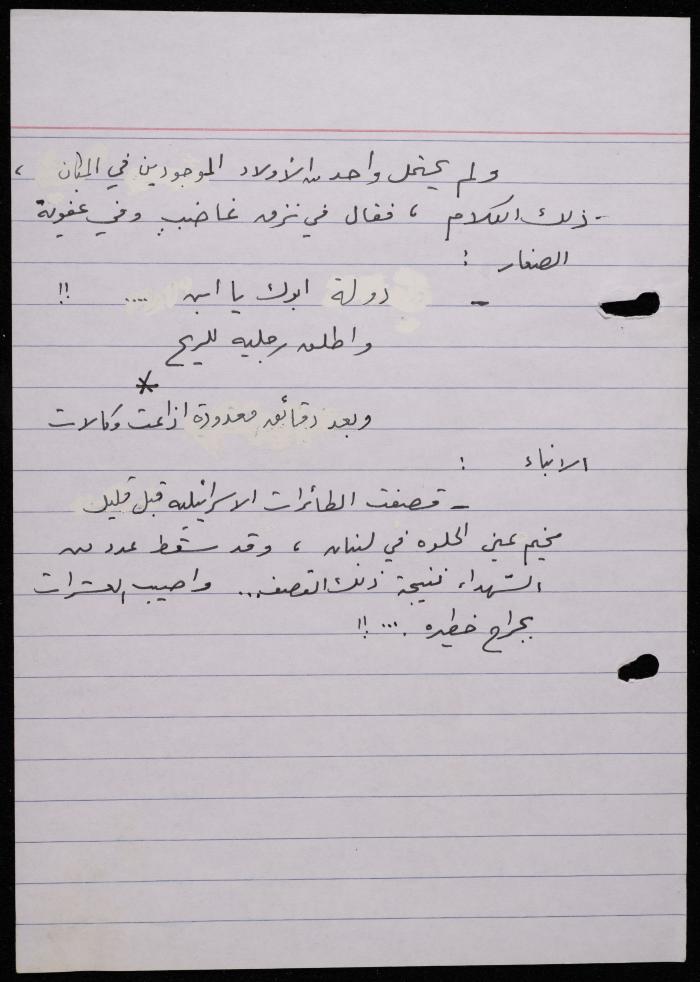 ولم يحتمل واحد من الأولاد الموجودين في المكان ،
ذلك الكلام ، فقال في نزق غاضب وفي عفوية
الصغار :
- دولة ابوك يا ابن .... !!
واطلق رجليه للريح
*
وبعد دقائق معدودة اذاعت وكالات
الانباء :
- قصفت الطائرات الاسرائيليه قبل قليل
مخيم عين الحلوه في لبنان ، وقد سقط عدد من
الشهداء نتيجة ذلك القصف... واصيب العشرات
بجراح خطيره .... !!